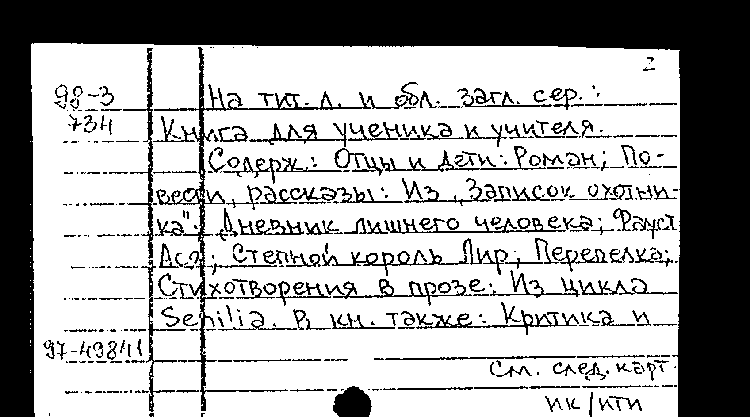 2
98-3 На тит. л. и обл. загл. сер.:
734 Книга для ученика и учителя.
Содерж.: Отцы и дети: Роман; По-
вести, рассказы: Из „Записок охотни-
ка"; Дневник лишнего человека; Фауст
Ася; Степной король Лир; Перепелка;
Стихотворения в прозе: Из цикла
Senilia. В кн. также: Критика и
97-49841
См. след. карт.
ик/кти